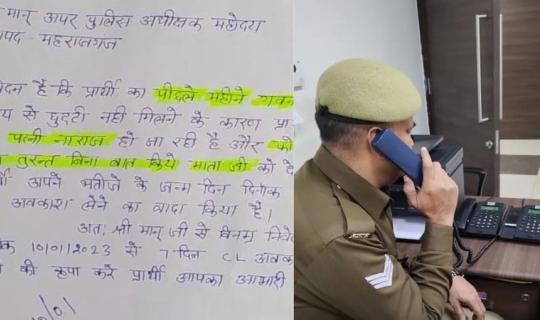 मान् अपर पुलिस अधीक्षक महोदया
पद - महराजगंज
दन है कि प्रार्थी का पीछले महीने गवन
य से छुट्टी नही मिलने के कारण प्रा
पत्नी नाराज हो जा रही है और फो
तुरन्त बिना बात किये माता जी को दे
अपने भतीजे के जन्म दिन दिनांक
अवकाश लेने का वादा किया है।
अतः श्री मान् जी से विनम्र निवे
क 10/01/2023 से 7 दिन CL अवक
की कृपा करें प्रार्थी आपका आभारी